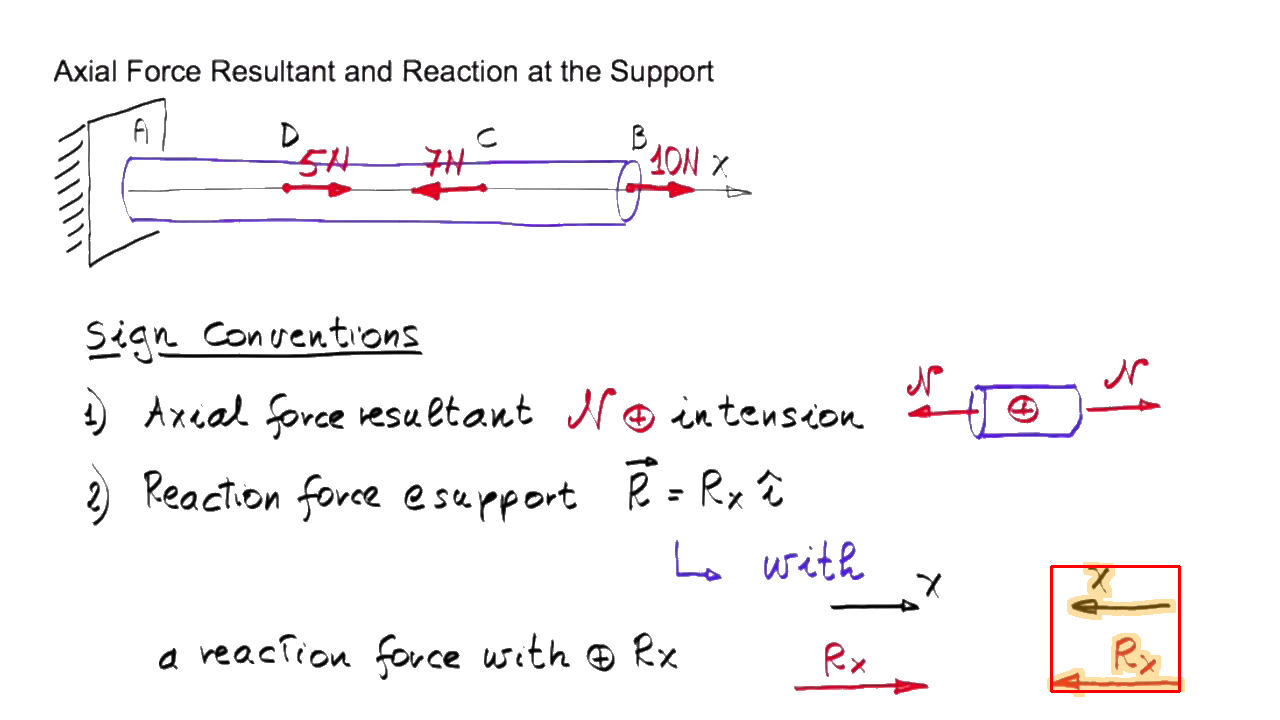 Axial Force Resultant and Reaction at the Support
A D C B
5N 7N 10N x
Sign Conventions
1) Axial force resultant N ⊕ in tension N ⊕ N
2) Reaction force @ support R⃗ = Rx î
↳ with x x
a reaction force with ⊕ Rx Rx Rx